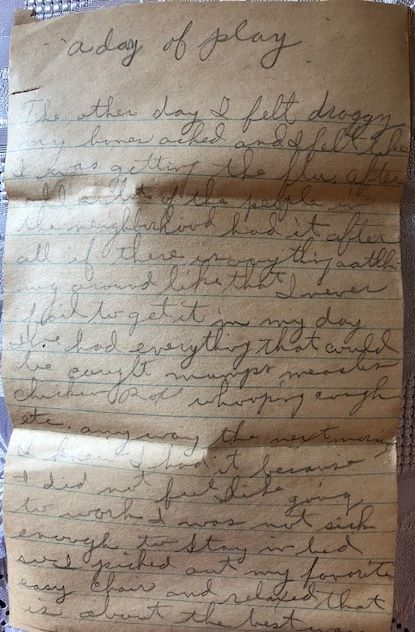 a day of play
The other day I felt droggy
my bones ached and I felt like
I was getting the flu. after
all a lot of the people in
the neighborhood had it after
all if there is anything
ing around like that I never
fail to get it in my day
I've had everything that could
be caught mumps measles
chicken pox whooping cough
etc. any way the next morn
I knew I had it because
I did not feel like going
to work I was not sick
enough to stay in bed
so I picked out my favorite
easy chair and relaxed that
is about the best